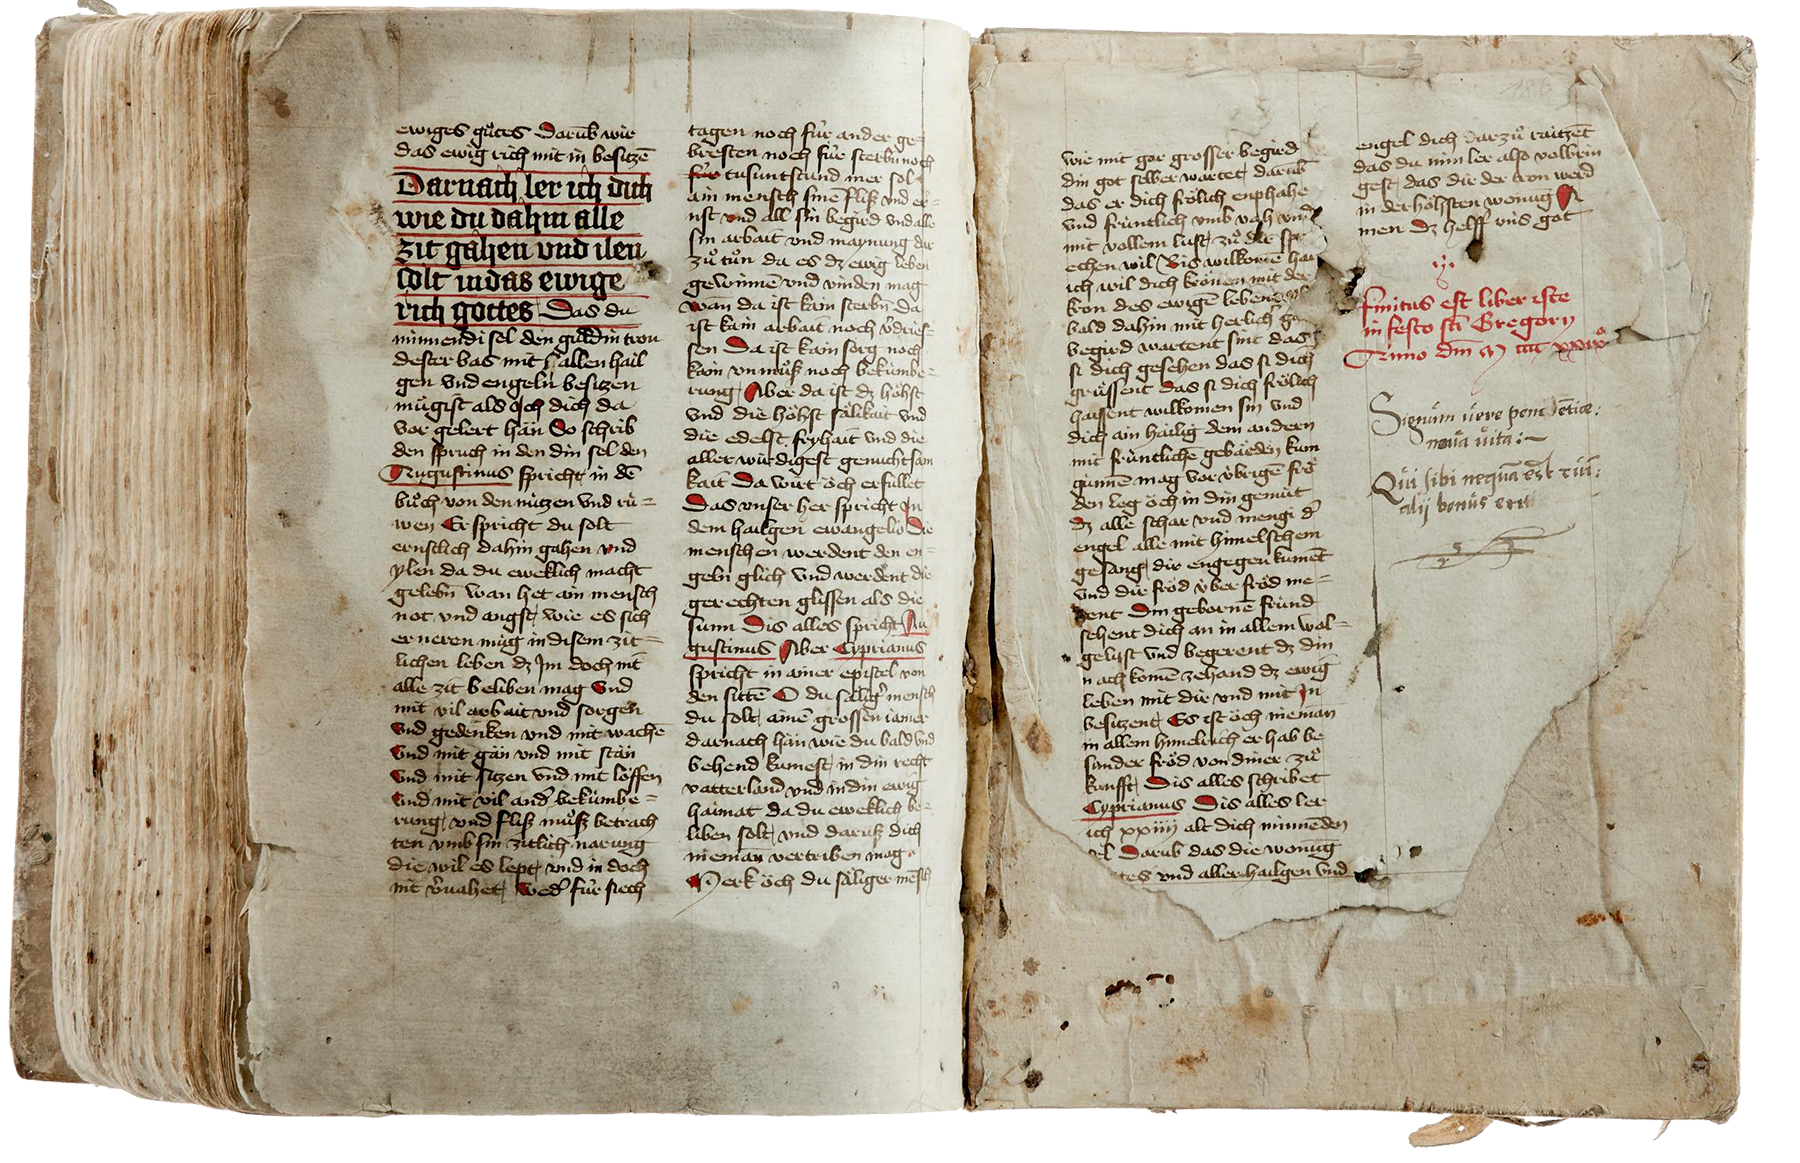 ewiges gůtes Darūb wir
das ewig rich mit in besitzē
Darnach ler ich dich
wie du dahin alle
zit gahen vnd ilen
solt in das ewige
rich gottes Das du
minnendi sel den guldin tron
dester bas mit allen hail
gen vnd engeln besitzen
mügist als Ich dich da
vor gelert hān So schrib
den spruch in den din sel den
Augustinus spricht in dē
bůch von den nützen vnd rü=
wen Er spricht du solt
ernstlich dahin gahen vnd
ylen da du eweklich macht
gelebn wan het ain mensch
not vnd angst wie es sich
erneren müg in disem zit=
lichen leben dz Jm doch nit
alle zit beliben mag Vnd
mit vil arbait vnd sorgen
Vnd gedenken vnd mit wachē
Vnd mit gān vnd mit stān
Vnd mit sitzen vnd mit löffen
Vnd mit vil and' bekümbe=
rung vnd fliß můß betrach
ten vmb sin zitlich narung
die wil es lept vnd in doch
nit vervahet wed' für siech
tagen noch für ander ge=
bresten noch für sterbn noch
für tusuntstund mer sol
ain mensch sinē fliß vnd er=
nst vnd all sin begird vnd alle
sin arbait vnd maynung dar
zů tůn da es dz ewig leben
gewinnē vnd vinden mag
wan da ist kain sterbn da
ist kain arbait noch v'drieſ=
sen Da ist kain sorg noch
kain vnmůß noch bekümbe=
rung Aber da ist dz höhst
vnd die höhst sälikait vnd
die edelst fryhait vnd die
aller würdigest genuchtsam
kait Da würt öch erfüllet
Das vnser her spricht Jn
dem hailgen ewangelio Die
menschen werdent den en=
geln glich vnd werdent die
gerechten glissen als die
sunn Dis alles spricht Au
gustinus Aber Cyprianus
spricht in ainer epistel von
den sittē O du sälig' mensch
du solt ainē grossen iamer
darnach hān wie du bald vnd
behend kumest in din recht
vatterland vnd in din ewig
haimat da du eweklich be=
liben solt vnd daruß dich
nieman vertriben mag
Merk öch du säliger mēsch
wie mit gar grosser begird
din got selber wartet darūb
das er dich frölich enphahe
vnd früntlich vmb vah vnd
mit vollem lust zů dir spr
echen wil Bis wilkomē har
ich wil dich krönen mit der
kron des ewigē lebens
bald dahin mit herlich
begird wartent sint das
si dich gesehen das si dich
grüssent das si dich frölich
haissent wilkomen sin vnd
dich ain hailig dem andern
mit früntlichē gebärden kum
günnē mag vor übrigē frö
den leg öch in din gemüt
dz alle schar vnd mengi d'
engel alle mit himelschem
gesang dir engegen kumēt
vnd die fröd über fröd me=
rent Din gebornē fründ
sehent dich an in allem wol=
gelust vnd begerent dz din
nachkomē zehand dz ewig
leben mit dir vnd mit Jn
besitzent Es ist öch nieman
in allem himelrich er hab be
sunder fröd von diner zů
kunfft Dis alles schribet
Cyprianus Dis alles ler
ich xxiiii alt dich minnēden
sel Darūb das die wonūg
tes vnd aller hailgen vnd
engel dich darzů raitzēt
das du min ler also volbrin
gest das dir der tron werd
in der höhsten wonūg A
men dz helff vns got
finitus est liber iste
in festo sti Gregorij
Anno dm̄ M cccc xxxix°
Signum uere penitētie:
noua uita:~
Qui sibi nequā est cui:
alij bonus erit